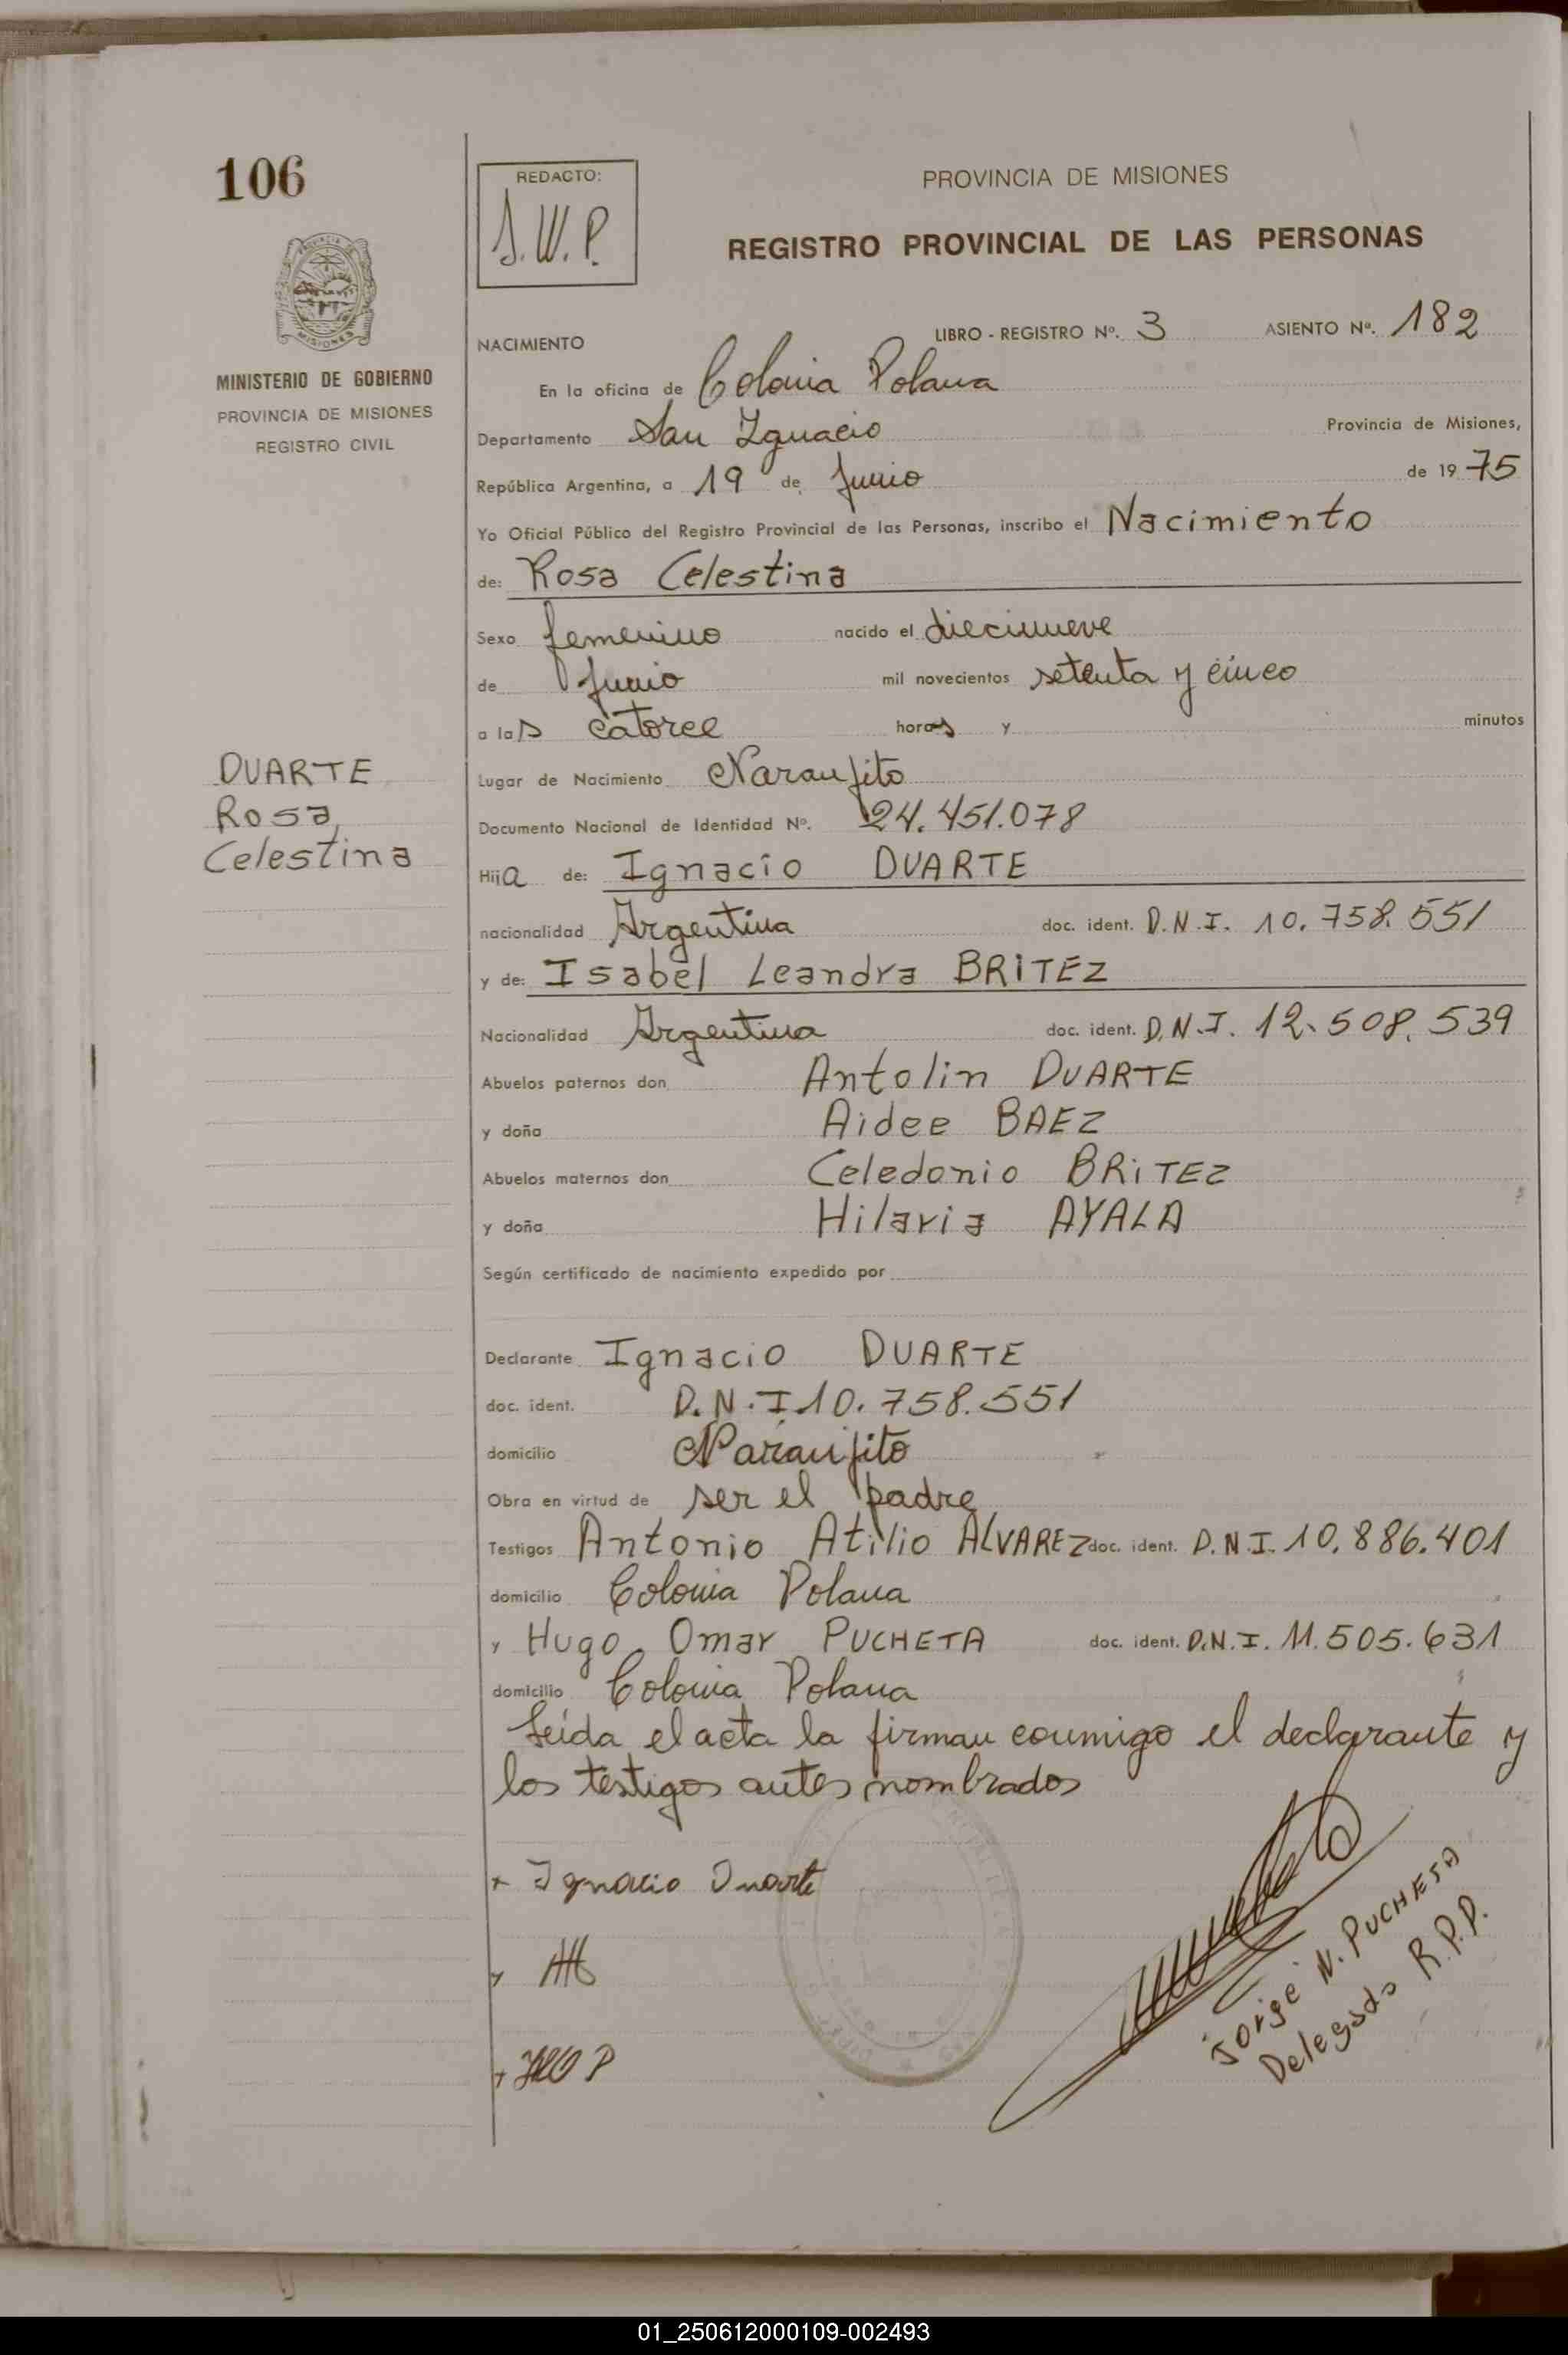 106
MINISTERIO DE GOBIERNO
PROVINCIA DE MISIONES
REGISTRO CIVIL
DUARTE
Rosa
Celestina
REDACTO:
J.W.P.
PROVINCIA DE MISIONES
REGISTRO PROVINCIAL DE LAS PERSONAS
NACIMIENTO LIBRO - REGISTRO Nº. 3 ASIENTO Nº. 182
En la oficina de Colonia Polana
Departamento San Ignacio Provincia de Misiones,
República Argentina, a 19 de Junio de 19 75
Yo Oficial Público del Registro Provincial de las Personas, inscribo el Nacimiento
de: Rosa Celestina
Sexo femenino nacido el diecinueve
de Junio mil novecientos setenta y cinco
a las catorce horas y minutos
Lugar de Nacimiento Naranjito
Documento Nacional de Identidad Nº. 24.451.078
Hija de: Ignacio DUARTE
nacionalidad Argentina doc. ident. D.N.I. 10.758.551
y de: Isabel Leandra BRITEZ
Nacionalidad Argentina doc. ident. D.N.I. 12.508.539
Abuelos paternos don Antolin DUARTE
y doña Aidee BAEZ
Abuelos maternos don Celedonio BRITEZ
y doña Hilaria AYALA
Según certificado de nacimiento expedido por
Declarante Ignacio DUARTE
doc. ident. D.N.I 10.758.551
domicilio Naranjito
Obra en virtud de ser el padre
Testigos Antonio Atilio ALVAREZ doc. ident. D.N.I. 10.886.401
domicilio Colonia Polana
y Hugo Omar PUCHETA doc. ident. D.N.I. 11.505.631
domicilio Colonia Polana
Leída el acta la firman conmigo el declarante y
los testigos antes nombrados
+ Ignacio Duarte
Jorge N. PUCHETA
Delegado R.P.P.
01_250612000109-002493